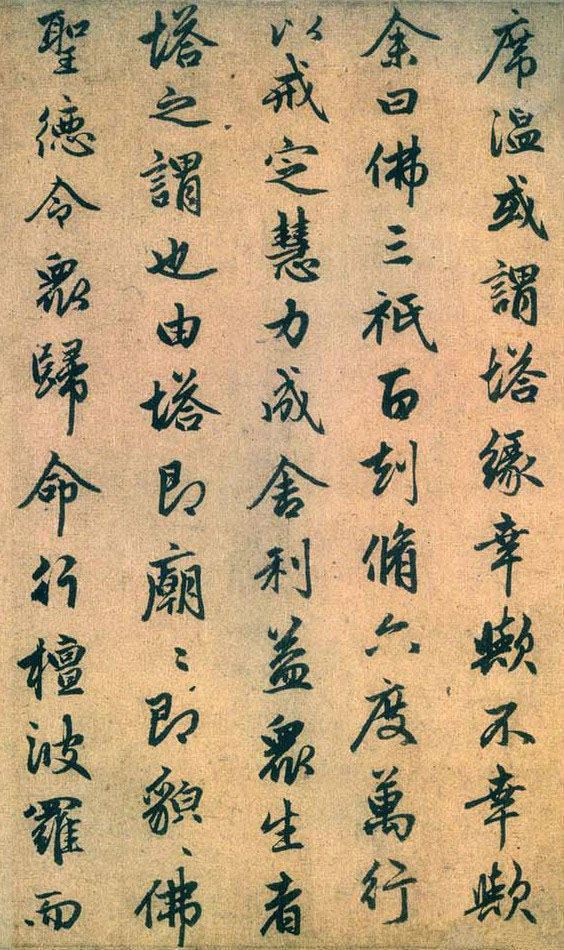 席温或謂塔緣幸歟不幸歟
余曰佛三祇百劫脩六度萬行
以戒定慧力成舍利益眾生者
塔之謂也由塔即廟〻即貌〻佛
聖德令眾歸命行檀波羅而